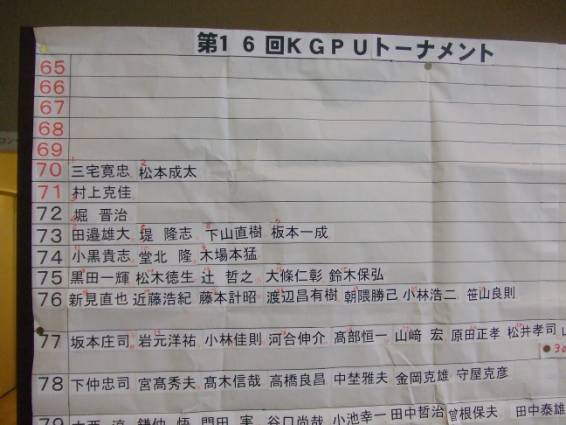 第16回KGPUトーナメント
65
66
67
68
69
70 三宅寛忠 松本成太
71 村上克佳
72 堀 晋治
73 田邉雄大 堤 隆志 下山直樹 板本一成
74 小黒貴志 堂北 隆 木場本猛
75 黒田一輝 松木徳生 辻 哲之 大條仁彰 鈴木保弘
76 新見直也 近藤浩紀 藤本計昭 渡辺昌有樹 朝隈勝己 小林浩二 笹山良則
77 坂本庄司 岩元洋祐 小林佳則 河合伸介 高部恒一 山﨑 宏 原田正孝 松井孝司
78 下仲忠司 宮髙秀夫 髙木信哉 高橋良昌 中埜雅夫 金岡克雄 守屋克彦
79 大西 淳 鎌仲 悟 門田 実 谷口尚哉 小池幸一 田中哲治 曾根保夫 田中雄